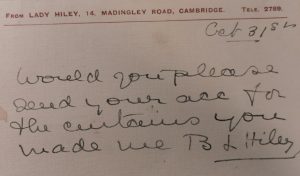 FROM LADY HILEY, 14, MADINGLEY ROAD, CAMBRIDGE. TELE. 2788.
Oct 31st
would you please
send your acc for
the curtains you
made me B L Hiley